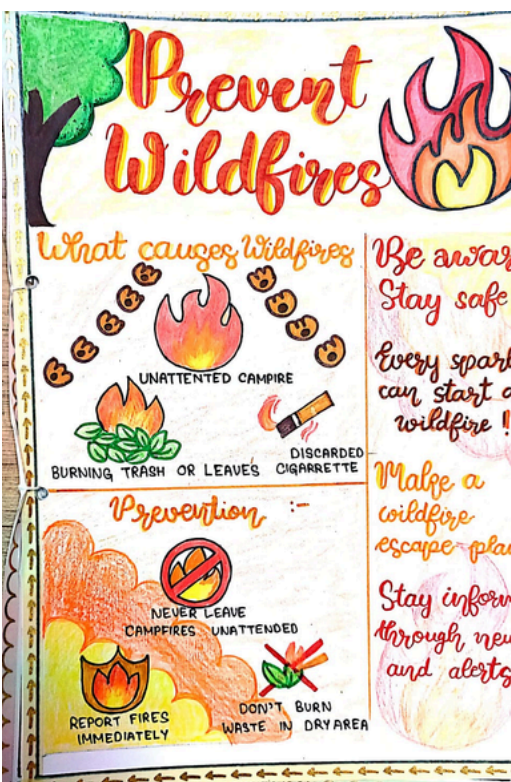 Prevent
Wildfires
What causes Wildfires
UNATTENTED CAMPIRE
BURNING TRASH OR LEAVES
DISCARDED
CIGARRETTE
Prevention :-
NEVER LEAVE
CAMPFIRES UNATTENDED
REPORT FIRES
IMMEDIATELY
DON'T BURN
WASTE IN DRY AREA
Be
Stay safe
Every
can start
wildfire !
Make a
wildfire
escape
Stay
through
and alerts